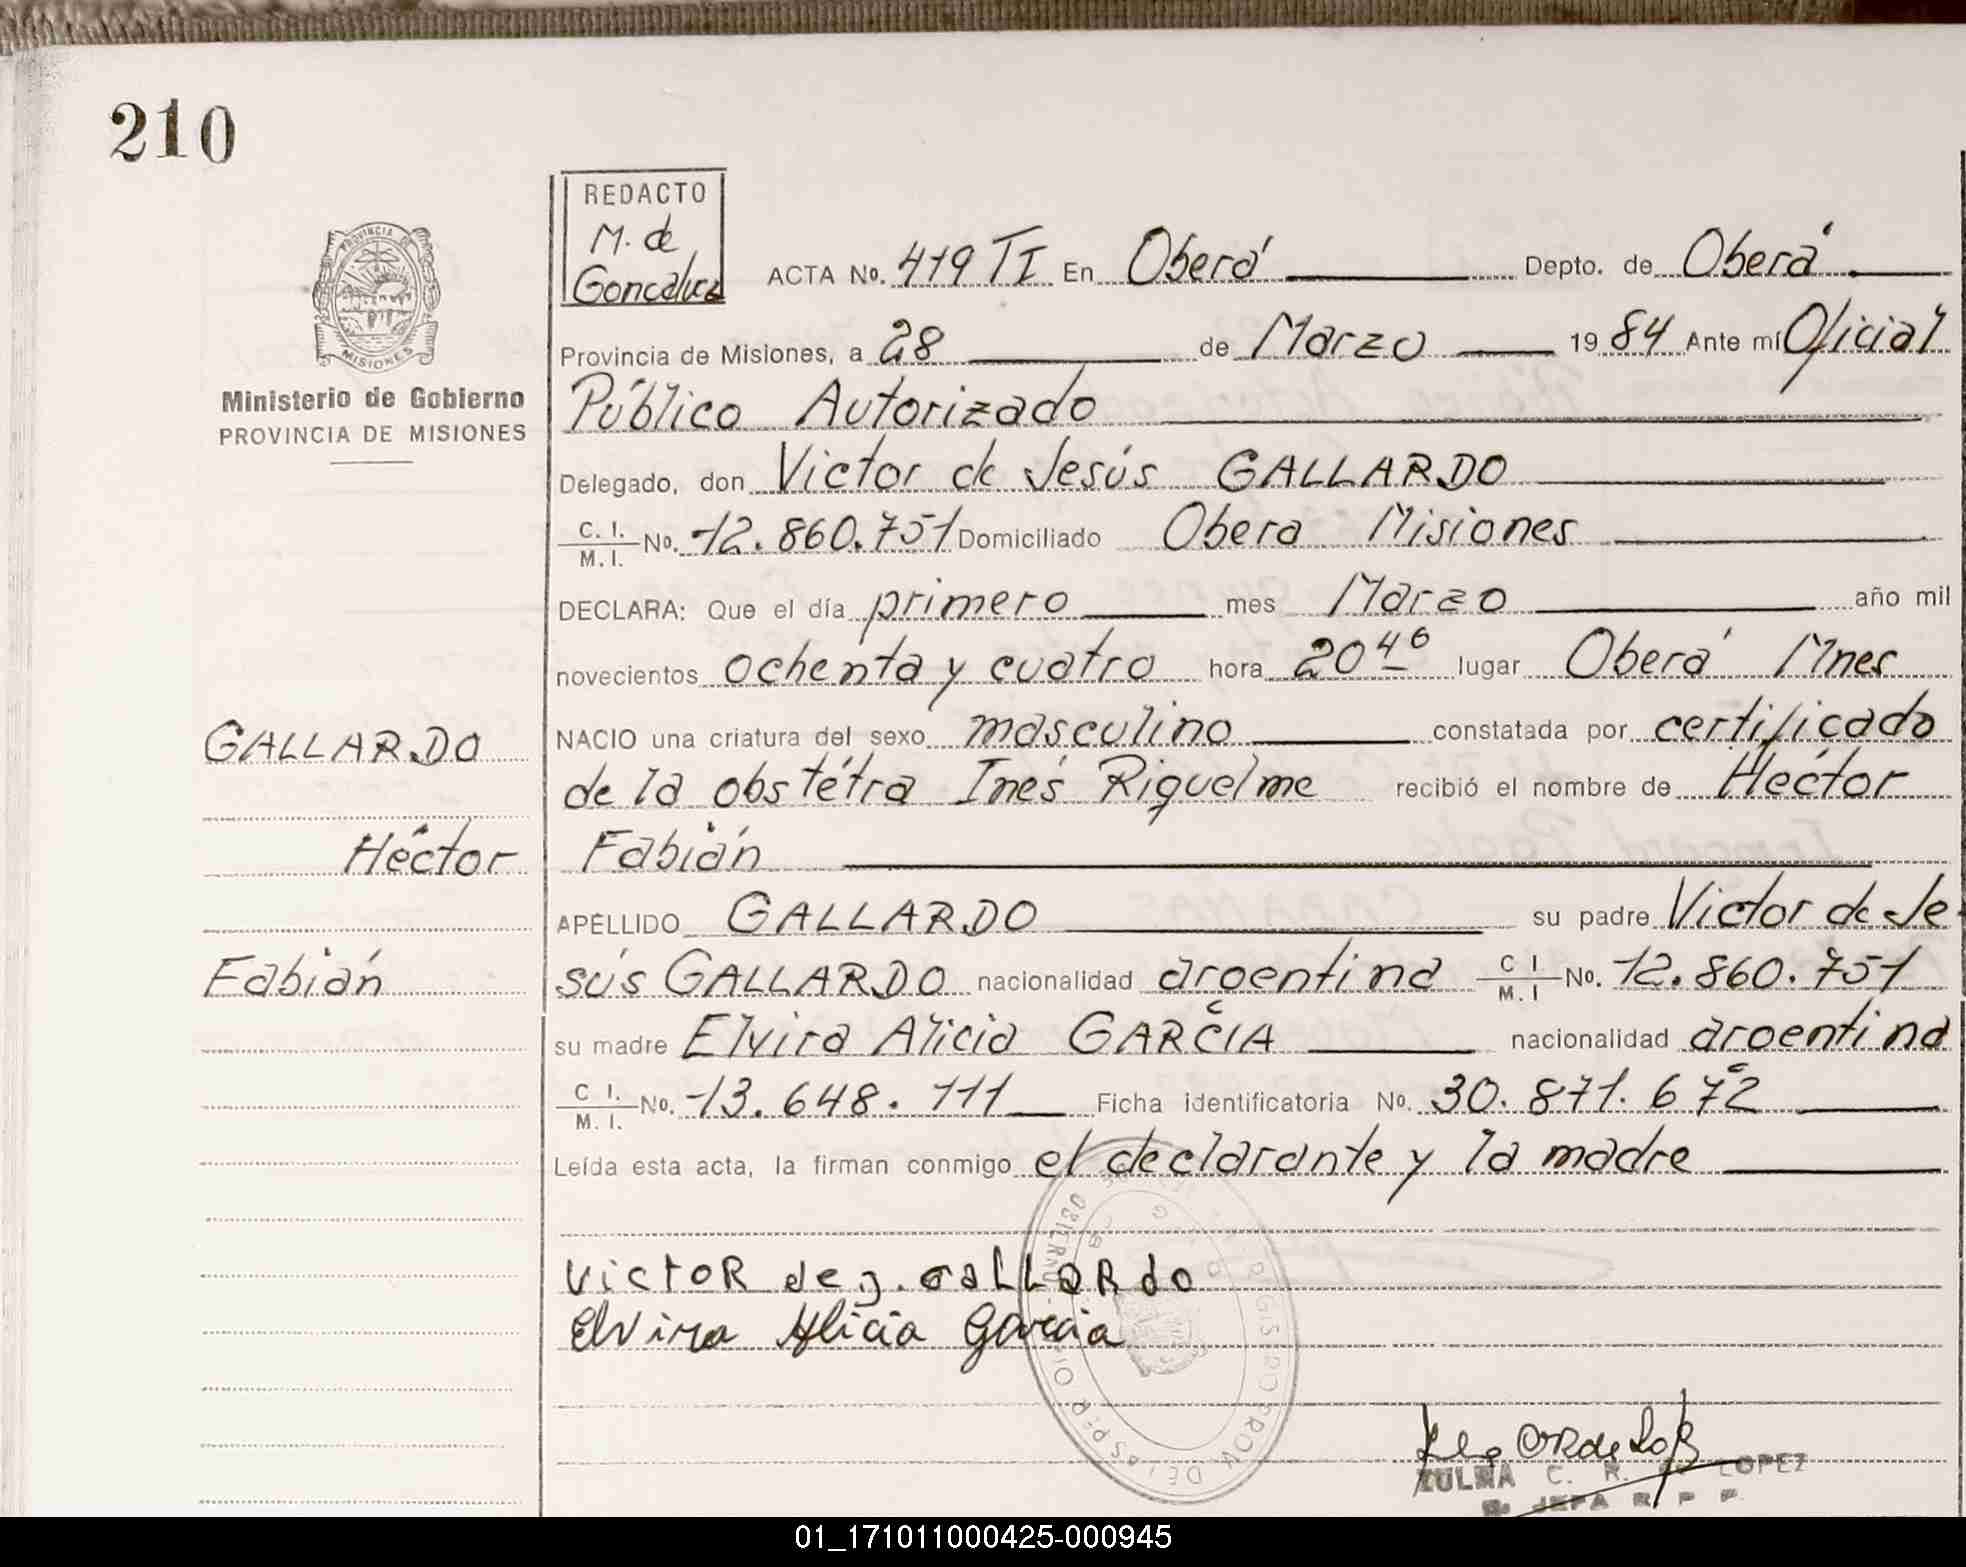 210
REDACTO
M. de
Goncalvez
ACTA No. 419 TI En Oberá Depto. de Oberá
Provincia de Misiones, a 28 de Marzo 1984 Ante mí Oficial
Ministerio de Gobierno
PROVINCIA DE MISIONES
Público Autorizado
Delegado, don Victor de Jesús GALLARDO
C. I.
M. I. No. 12.860.751 Domiciliado Obera Misiones
DECLARA: Que el día primero mes Marzo año mil
novecientos ochenta y cuatro hora 20 40 lugar Oberá Mnes
GALLARDO
NACIO una criatura del sexo masculino constatada por certificado
de la obstétra Inés Riquelme recibió el nombre de Héctor
Héctor
Fabián
APELLIDO GALLARDO su padre Victor de Je
Fabián
sús GALLARDO nacionalidad argentina C I
M. I No. 12.860.751
su madre Elvira Alicia GARCIA nacionalidad argentina
C I.
M. I. No. 13.648.111 Ficha identificatoria No. 30.871.672
Leída esta acta, la firman conmigo el declarante y la madre
Victor de J. GALLARdo
Elvira Alicia Garcia
ZULMA C. R. de LOPEZ
JEFA R P P
01_171011000425-000945